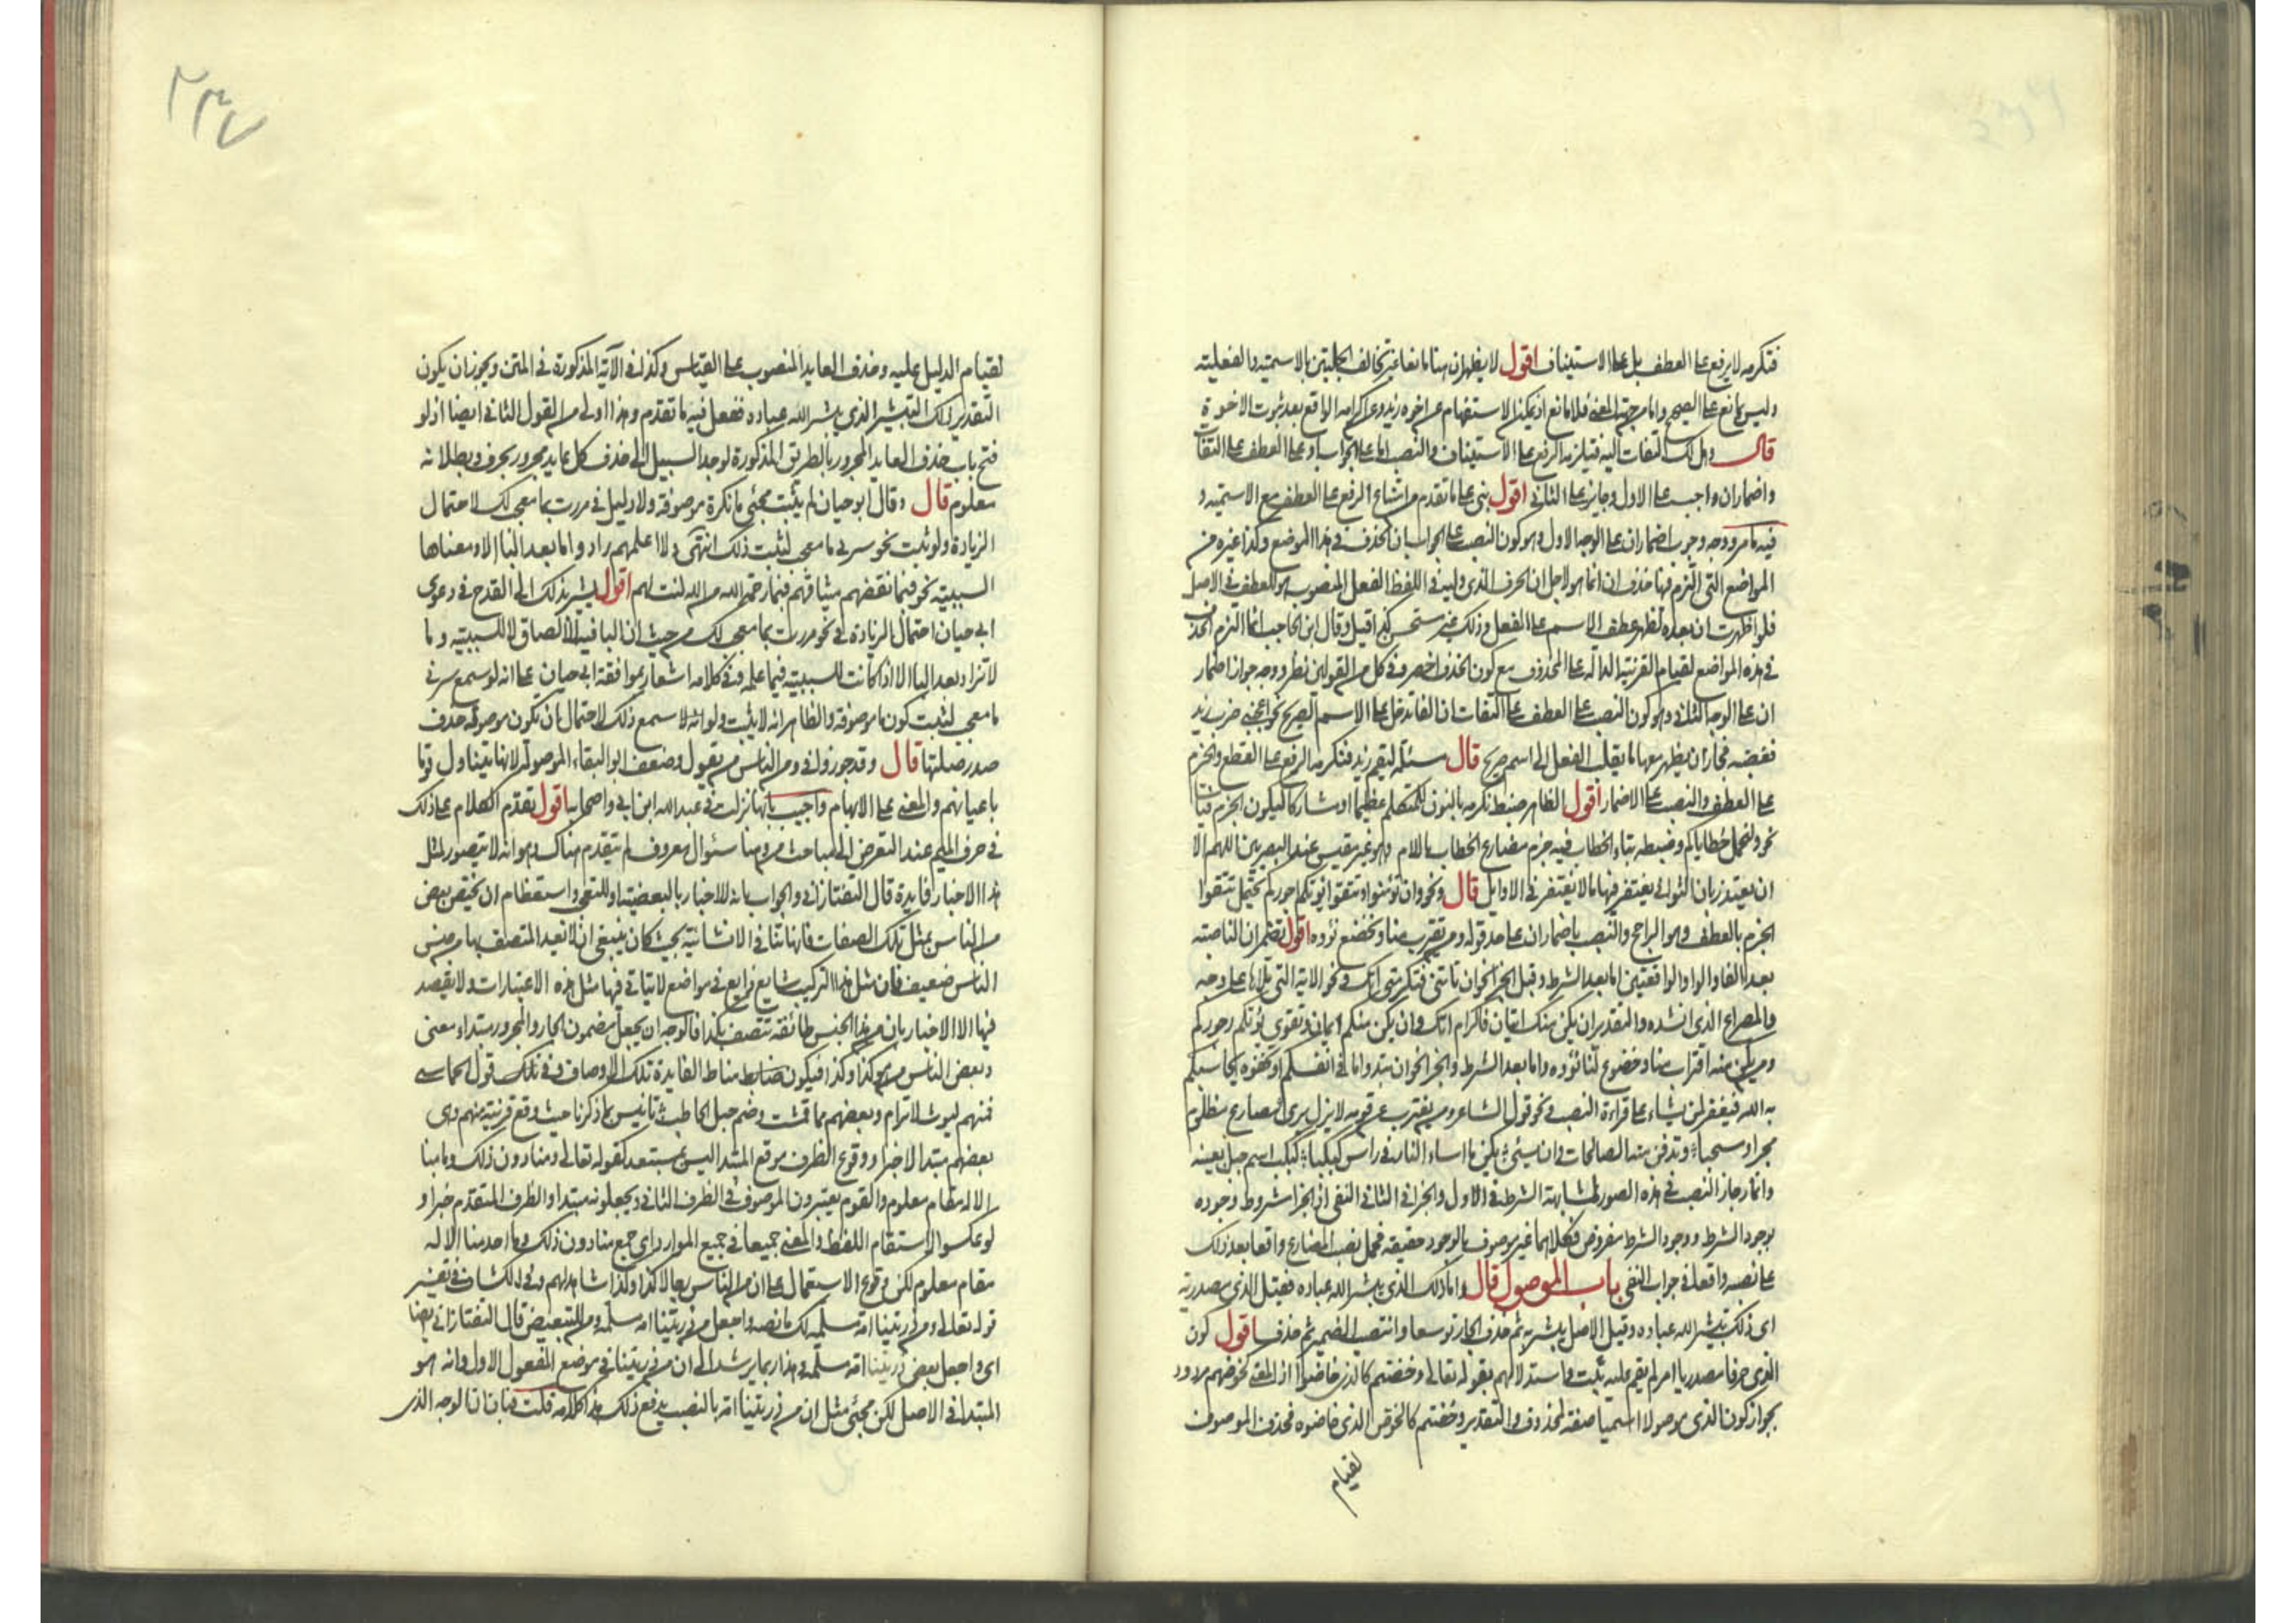 فتكرمه لا يرفع على العطف بل على الاستيناف اقول لا يظهر ان هنا مانعا غير تخالف الجملتين بالاسمية والفعلية
وليس بمانع على الصحيح واما من جهة المعنى فلا مانع اذ يمكن الاستفهام عن اخوه زيد وعن اكرامه الواقع بعد ثبوت الاخوة
قال وهل لك التفات اليه فتلزمه الرفع على الاستيناف والنصب اما على الجواب او على العطف على التفات
واضمار ان واجب على الاول وجايز على الثاني اقول بنى على ما تقدم من امتناع الرفع على العطف مع الاسمية و
فيه ما مر ووجه وجوب اضمار ان على الوجه الاول وهو كون النصب على الجواب ان الحذف في هذا الموضع وكذا غيره من
المواضع التي التزم فيها حذف ان انما هو لاجل ان الحرف الذي وليه في اللفظ الفعل المنصوب هو للعطف في الاصل
فلو اظهرت ان بعده لظهر عطف الاسم على الفعل وذلك غير مستحسن كذا قيل وقال ابن الحاجب انما التزم الحذف
في هذه المواضع لقيام القرينة الدالة على المحذوف مع كون الحذف اخصر وفي كل من القولين نظر ووجه جواز اضمار
ان على الوجه الثاني وهو كون النصب على العطف على التفات ان الفا تدخل على الاسم الصريح نحو اعجبني ضرب زيد
فغضبه فجاز ان يظهر معها ما يقلب الفعل الى اسم صريح قال مسئلة ليقم زيد فنكرمه الرفع على القطع والجزم
على العطف والنصب على الاضمار اقول الظاهر ضبط نكرمه بالنون للمتكلم عظيما او مشاركا ليكون الجزم فيه
نحو ولنحمل خطاياكم وضبطه بتاء الخطاب فيه جزم مضارع الخطاب باللام وهو غير مقيس عند البصريين اللهم الا
ان يعتذر بان الثواني يغتفر فيها ما لا يغتفر في الاوايل قال ونحو وان تؤمنوا وتتقوا يؤتكم اجوركم يحتمل تتقوا
الجزم بالعطف وهو الراجح والنصب باضمار ان على حد قوله ومن يقترب منا ويخضع نؤوه اقول تضمر ان الناصبة
بعد الفا والواو الواقعتين اما بعد الشرط وقبل الجزا نحو ان تاتني فتكرمني آتك ونحو الاية التي تلاها على وجه
والمصراع الذي انشده والتقدير ان يكن منك اتيان فاكرام آتك وان يكن منكم ايمان وتقوى يؤتكم اجوركم
ومن يكن منه اقتراب منا وخضوع لنا نؤوه واما بعد الشرط والجزا نحو ان تبدوا ما في انفسكم او تخفوه يحاسبكم
به الله فيغفر لمن يشاء على قراءة النصب ونحو قول الشاعر ومن يغترب عن قومه لا يزل يرى مصارع مظلوم
مجرا ومسحبا وتدفن منه الصالحات وان يسئ يكن ما اساء النار في راس كبكبا كبكب اسم جبل بعينه
وانما جاز النصب في هذه الصور لمشابهة الشرط في الاول والجزا في الثاني النفي اذ الجزا مشروط وجوده
بوجود الشرط ووجود الشرط مفروض فكلاهما غير موصوف بالوجود حقيقة فحمل نصب المضارع واقعا بعد ذلك
على نصبه واقعا في جواب النفي باب الموصول قال واما ذلك الذي يبشر الله عباده فقيل الذي مصدرية
اى ذلك تبشير الله عباده وقيل الاصل يبشر به ثم حذف الجار توسعا وانتصب الضمير ثم حذف اقول كون
الذي حرفا مصدريا امر لم يقم عليه ثبت واستدلالهم بقوله تعالى وخضتم كالذي خاضوا اذ المعنى كخوضهم مردود
بجواز كون الذي موصولا اسميا صفة لمحذوف والتقدير وخضتم كالخوض الذي خاضوه فحذف الموصوف
لقيام
٢٣٧
لقيام الدليل عليه وحذف العايد المنصوب على القياس وكذا في الآية المذكورة في المتن ويجوز ان يكون
التقدير ذلك التبشير الذي يبشر الله عباده ففعل فيه ما تقدم وهذا اولى من القول الثاني ايضا اذ لو
فتح باب حذف العايد المجرور بالطريق المذكورة لوجد السبيل الى حذف كل عايد مجرور بحرف وبطلانه
معلوم قال وقال ابو حيان لم يثبت مجئ ما نكرة موصوفة ولا دليل في مررت بما معجب لك لاحتمال
الزيادة ولو ثبت نحو سرني ما معجب لثبت ذلك انتهى ولا اعلمهم زادوا ما بعد البا الا ومعناها
السببية نحو فبما نقضهم ميثاقهم فبما رحمة من الله لنت لهم اقول يشير بذلك الى القدح في دعوى
ابي حيان احتمال الزيادة في نحو مررت بما معجب لك من حيث ان البا فيه للالصاق لا للسببية وما
لا تزاد بعد البا الا اذا كانت للسببية فيما علمه ففي كلامه اشعار بموافقة ابي حيان على انه لو سمع سرني
ما معجب لثبت كون ما موصوفة والظاهر انه لا يثبت ولو انه سمع ذلك لاحتمال ان يكون موصولة حذف
صدر صلتها قال وقد جوز في ومن الناس من يقول وضعف ابو البقاء الموصولة لانها يتناول قوما
باعيانهم والمعنى على الابهام واجيب بانها نزلت في عبد الله ابن ابي واصحابه اقول تقدم الكلام على ذلك
في حرف الميم عند التعرض الى مباحث من وهنا سئوال معروف لم يتقدم هناك وهو انه لا يتصور لمثل
هذا الاخبار فايدة قال التفتازاني والجواب بانه للاخبار بالبعضية او للتعجب واستعظام ان يختص بعض
من الناس بمثل تلك الصفات فانها تنافي الانسانية بحيث كان ينبغي ان لا يعد المتصف بها من جنس
الناس ضعيف فان مثل هذا التركيب شايع ذايع في مواضع لا يتاتى فيها مثل هذه الاعتبارات ولا يقصد
فيها الا الاخبار بان من هذا الجنس طائفة تتصف بكذا فالوجه ان يجعل مضمون الجار والمجرور مبتدا بمعنى
وبعض الناس من هو كذا وكذا فيكون مناط الفايدة تلك الاوصاف وفي ذلك قول الحماسي
فمنهم ليوث لا ترام وبعضهم مما قمشت وضم حبل الحاطب تانيس بما ذكرنا حيث وقع قرينة منهم وى
بعضهم مبتدا لا خبرا ووقوع الظرف موقع المبتدا ليس بمستبعد كقوله تعالى ومنا دون ذلك وما منا
الا له مقام معلوم والقوم يعتبرون الموصوف في الظرف الثاني ويجعلونه مبتدا والظرف المتقدم خبرا و
لو عكسوا لاستقام اللفظ والمعنى جميعا في جميع الموارد اى جمع منا دون ذلك وما احد منا الا له
مقام معلوم لكن وقوع الاستعمال على ان من الناس رجالا كذا وكذا شاهد لهم وفي الكشاف في تفسير
قوله تعالى ومن ذريتنا امة مسلمة لك ما نصه واجعل من ذريتنا امة مسلمة ومن للتبعيض قال التفتازاني يعنى
اى واجعل بعض ذريتنا امة مسلمة وهذا ربما يرشد الى ان من ذريتنا في موضع المفعول الاول وانه هو
المبتدا في الاصل لكن مجئ مثل ان من ذريتنا امة بالنصب يدفع ذلك هذا كلامه قلت الوجه الذى